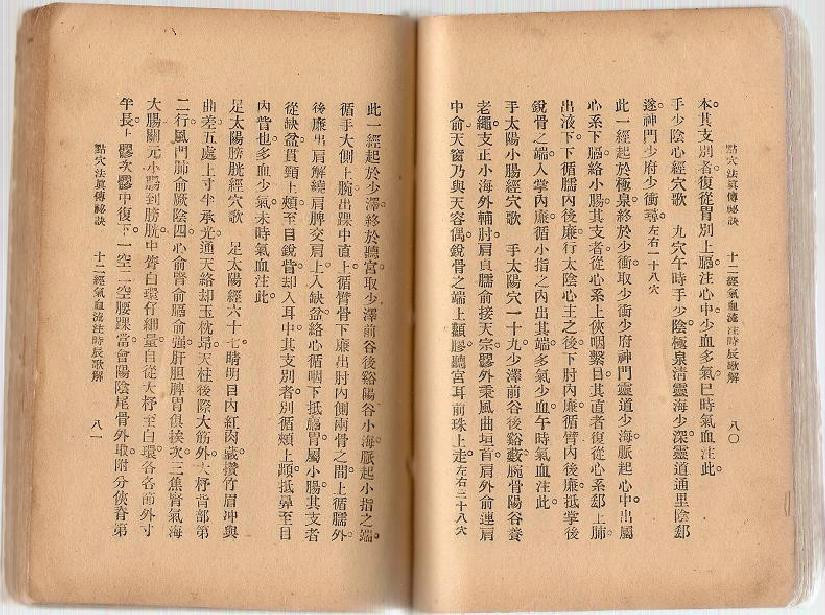 點穴法眞傳秘訣　十二經氣血流注時辰歌解　八〇
本。其支別者。復從胃別上膈。注心中。少血多氣。巳時氣血注此。
手少陰心經穴歌　九穴午時手少陰。極泉清靈海少深。靈道通里陰郄
遂。神門少府少衝尋。左右一十八穴
此一經起於極泉。終於少衝。取少衝少府神門靈道少海。脈起心中。出屬
心系。下膈絡小腸。其支者。從心系上俠咽。繫目。其直者。復從心系。郄上肺。
出液下。下循臑內後廉。行太陰心主之後。下肘內廉。循臂內後廉。抵掌後
銳骨之端。入掌內廉。循小指之內。出其端。多氣少血。午時氣血注此。
手太陽小腸經穴歌　手太陽穴一十九。少澤前谷後谿藪。腕骨陽谷養
老繩。支正小海外輔肘。肩貞臑俞接天宗。髎外秉風曲垣首。肩外俞連肩
中俞。天窗乃與天容偶。銳骨之端上顴髎。聽宮耳前珠上走。左右三十八穴
此一經起於少澤。終於聽宮。取少澤前谷後谿陽谷小海。脈起小指之端。
循手大側。上腕。出踝中。直上。循臂骨下廉。出肘內側兩骨之間。上循臑外
後廉。出肩解。繞肩脾。交肩上。入缺盆。絡心。循咽下。抵膈胃。屬小腸。其支者
從缺盆貫頸上頰。至目銳眥。却入耳中。其支別者。別循頰。上䪼。抵鼻。至目
內眥也。多血少氣。未時氣血注此。
足太陽膀胱經穴歌　足太陽經六十七。睛明目內紅肉藏。攢竹眉冲與
曲差。五處上寸半承光。通天絡却玉枕昂。天柱後際大筋外。大杼背部第
二行。風門肺俞厥陰四。心俞督俞膈俞強。肝胆脾胃俱挨次。三焦腎氣海
大腸。關元小腸到膀胱。中膂白環仔細量。自從大杼至白環。各各節外寸
半長。上髎次髎中復下。一空二空腰踝當。會陽陰尾骨外取。附分俠脊第
點穴法眞傳秘訣　十二經氣血流注時辰歌解　八一